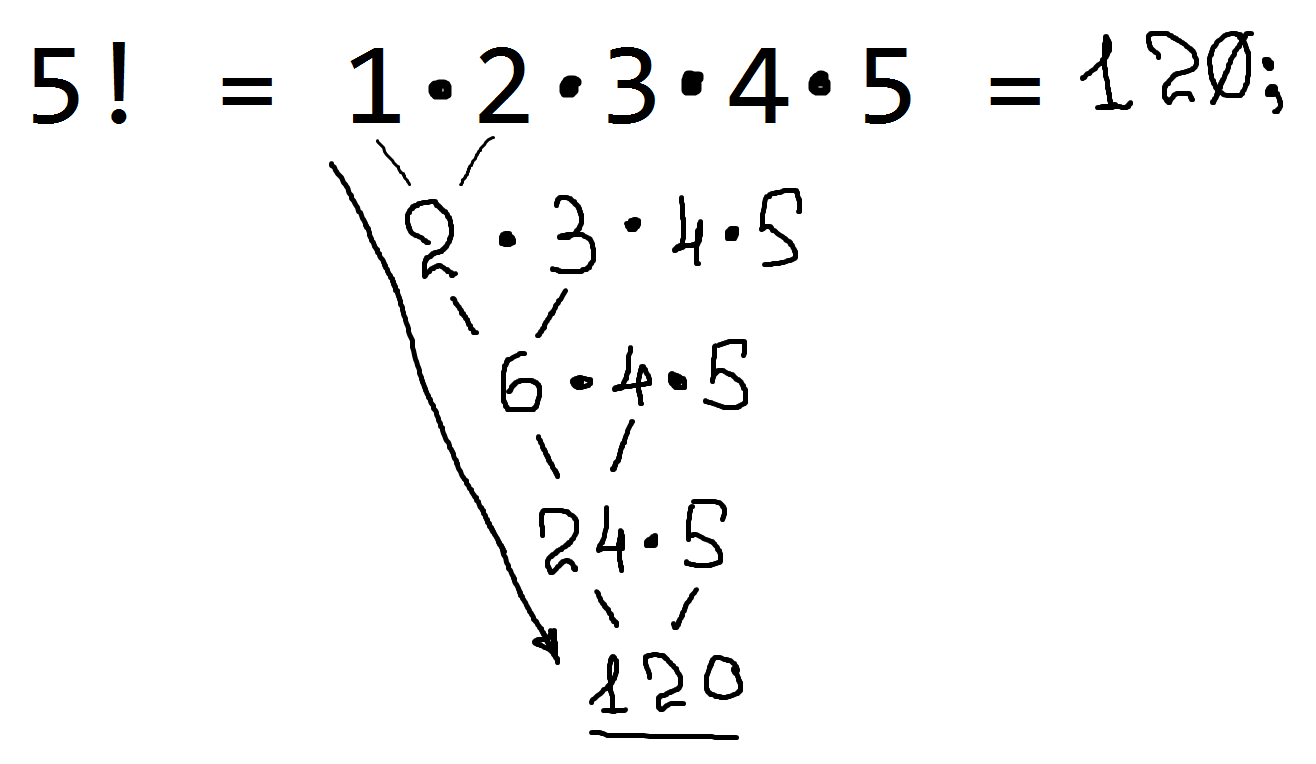 5! = 1·2·3·4·5 = 120;
2·3·4·5
6·4·5
24·5
120